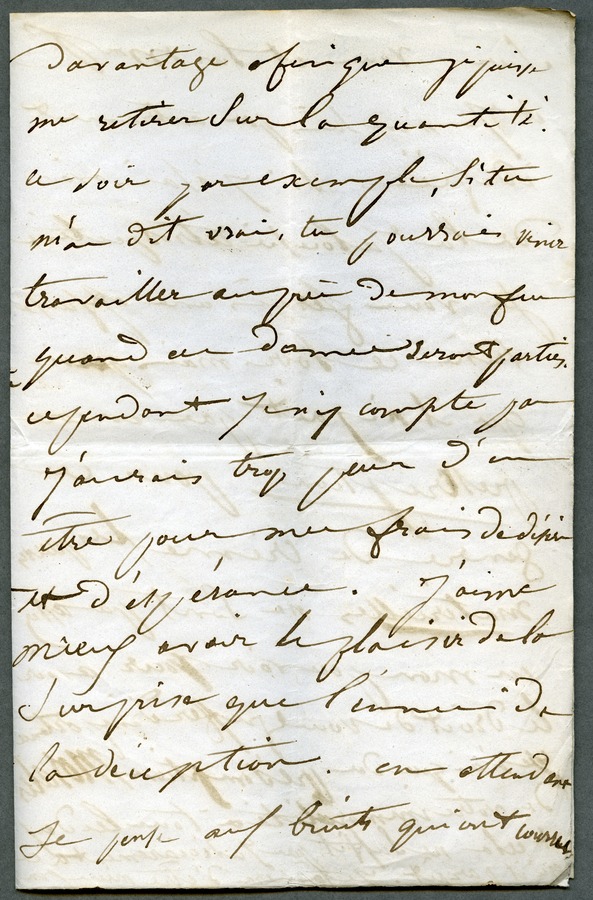 davantage afin que je puisse
me retirer sur la quantité.
ce soir par exemple, si tu
m'as dit vrai, tu pourrais venir
travailler auprès de mon feu
quand ces dames seront parties.
cependant je n'y compte pas
j'aurais trop peur d'en
être pour mes frais de désir
et d'espérance. J'aime
mieux avoir le plaisir de la
surprise que l'ennui de
la déception. en attendant
Je pense aux bruits qui ont couru